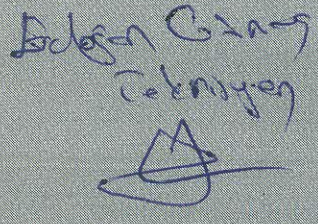 Erdoğan Güneş
Teknisyen